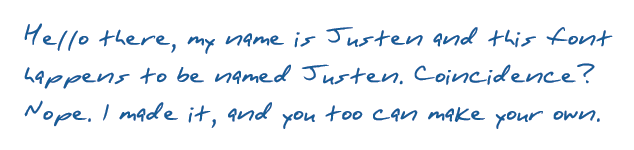 Hello there, my name is Justen and this font
happens to be named Justen. Coincidence?
Nope. I made it, and you too can make your own.